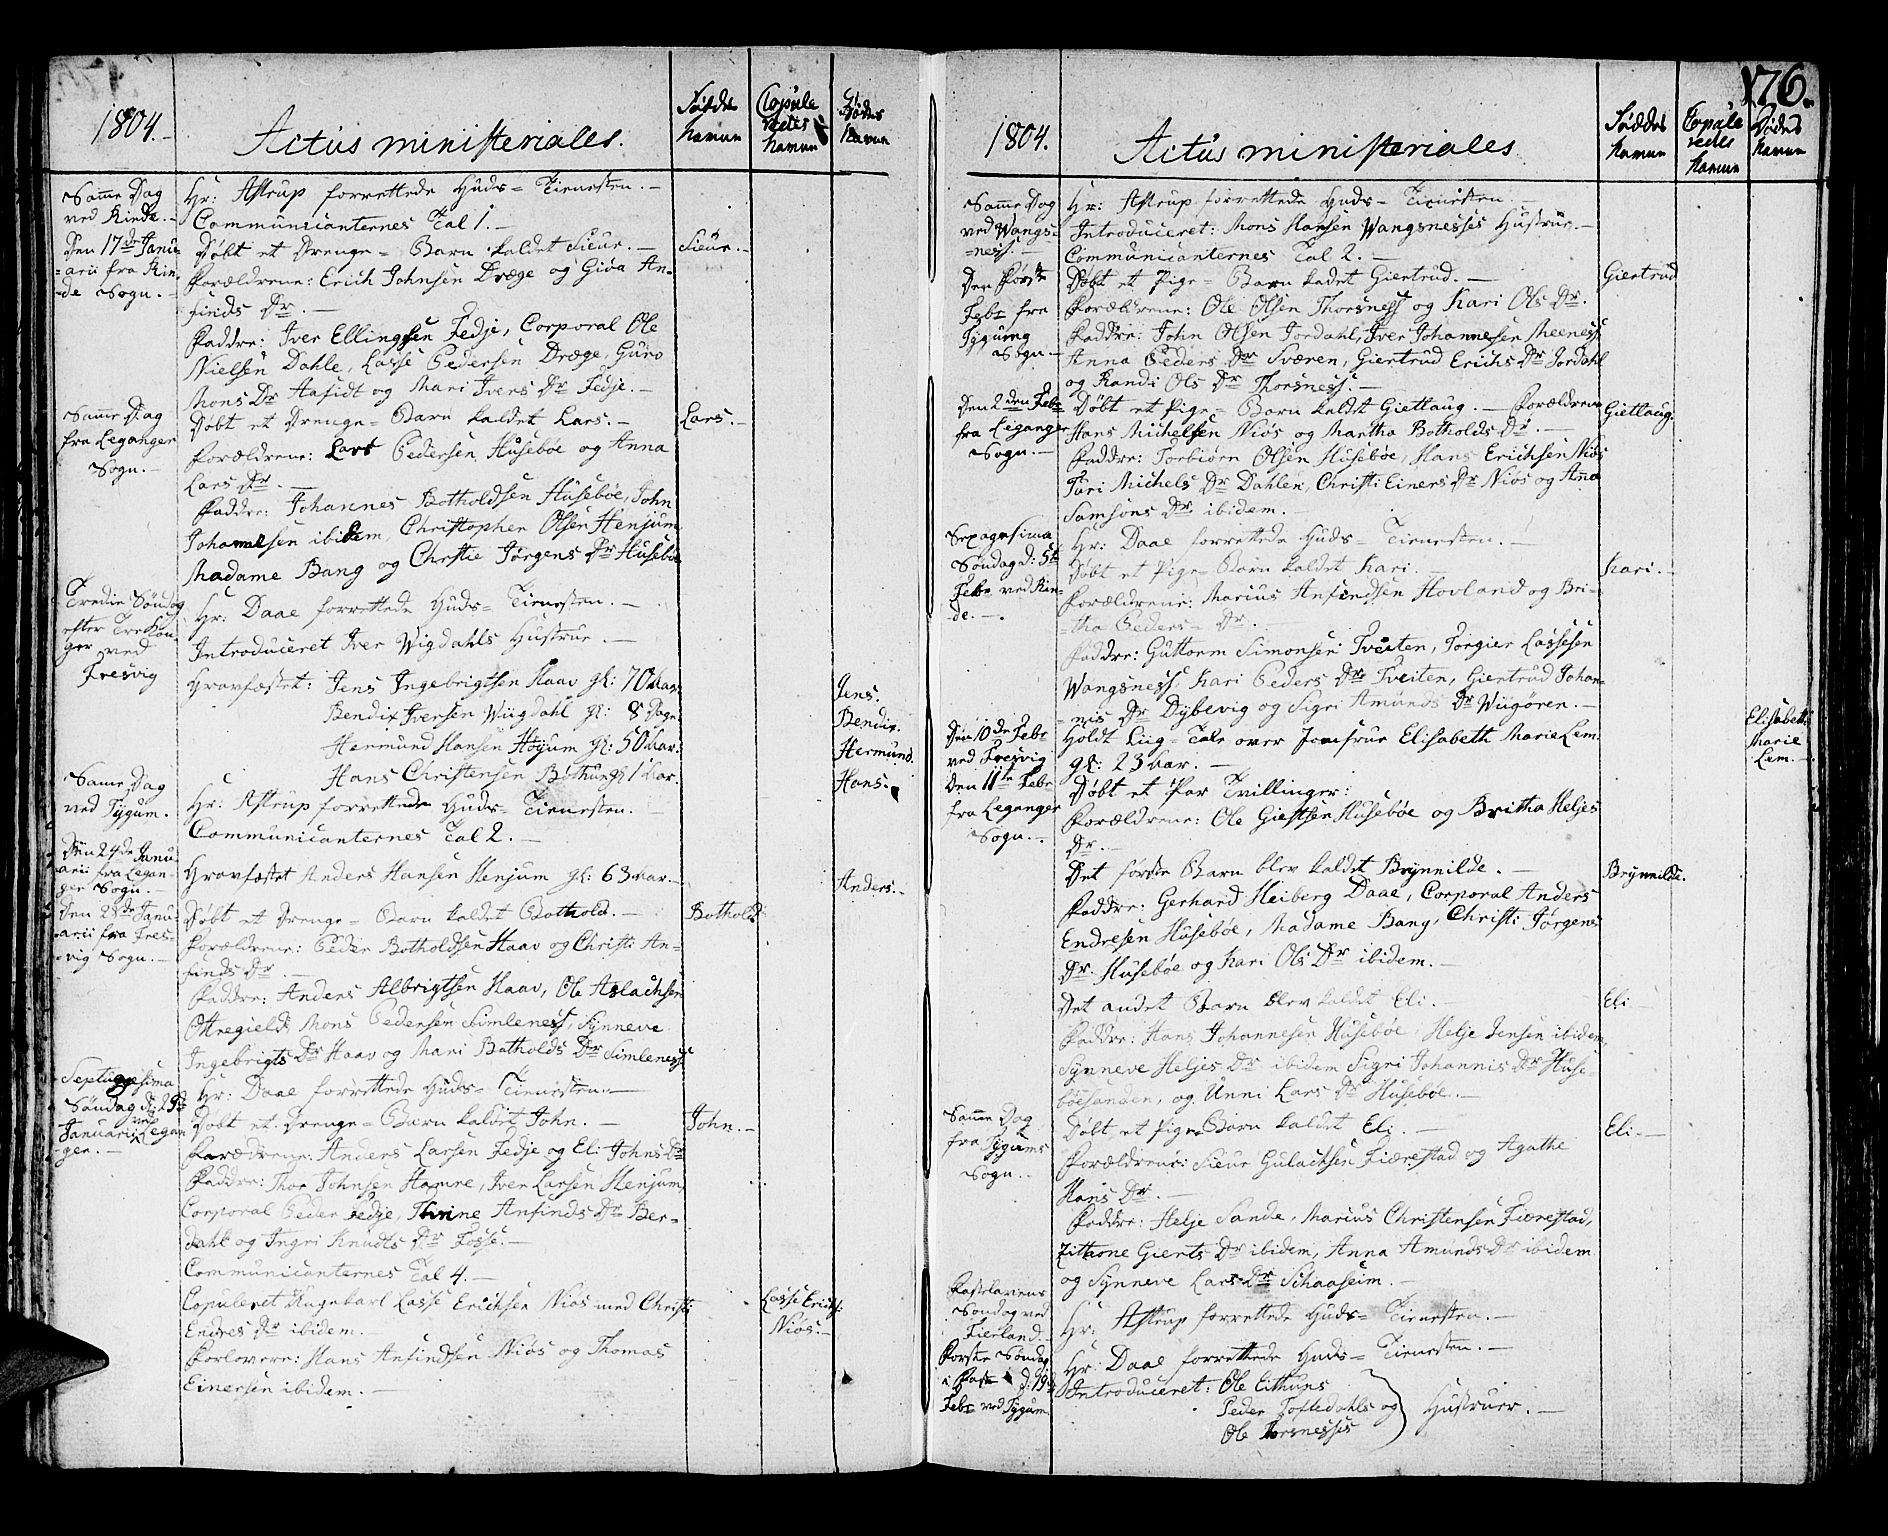 1804.
Actus ministeriales.
Fødde Navne
Copule redes Navne
Dødes Navne
Samme Dag ved Rinde.
Hr: Astrup forrettede Guds-Tienesten.
Communicanternes Tal 1.
Den 17de Janu-
arii fra Rin-
de Sogn.
Døbt et Drenge-Barn kaldet Sieur.
Sieur.
Forældrene: Erich Johnsen Dræge og Giøa An-
finds Dr.
Faddre: Iver Ellingsen Fedje, Corporal Ole
Nielsen Dahle, Lasse Pedersen Dræge, Guro
Mons Dr Aafidt og Mari Ivers Dr Fedje.
Samme Dag
fra Leganger
Sogn.
Døbt et Drenge-Barn kaldet Lars.
Lars.
Forældrene: Lars Pedersen Husebøe og Anna
Lars Dr.
Faddre: Johannes Botholdsen Husebøe, John
Johannesen ibidem, Christopher Olsen Henjum,
Madame Bang og Christie Jørgens Dr Husebøe
Tredie Søndag
efter Tre Kon-
ger ved
Fresvig
Hr: Daae forrettede Guds-Tienesten.
Introduceret Iver Wigdahls Hustrue.
Gravfæstet: Jens Ingebrigtsen Haav gl: 70 Aar.
Jens.
Bendix Iversen Wiigdahl gl: 8 Dage
Bendix.
Hermund Hansen Høyum gl: 50 Aar.
Hermund.
Hans Christensen Bøthun gl 1 Aar.
Hans.
Samme Dag
ved Tygum.
Hr: Astrup forrettede Guds-Tienesten.
Communicanternes Tal 2.
Den 24de Janu-
arii fra Legan-
ger Sogn.
Gravfæstet Anders Hansen Henjum gl: 63 Aar.
Anders.
Den 25de Janu-
arii fra Fres-
vig Sogn.
Døbt et Drenge-Barn kaldet Bothold.
Bothold.
Forældrene: Peder Botholdsen Haav og Christi An-
finds Dr.
Faddre: Anders Albrigtsen Haav, Ole Aslachsen
Ottregield, Mons Pedersen Simleness, Synneve
Ingebrigts Dr Haav og Mari Botholds Dr Simleness
Septuagesima
Søndag d: 29de
Januarii ved Legan-
ger.
Hr: Daae forrettede Guds-Tienesten.
Døbt et Drenge-Barn kaldet John.
John.
Forældrene: Anders Larsen Fedje og Eli Johns Dr
Faddre: Thor Johnsen Hamre, Iver Larsen Henjum,
Corporal Peder Fedje, Thrine Anfinds Dr Ber-
dahl og Ingri Knudts Dr Fosse.
Communicanternes Tal 4.
Copuleret Ungekarl Lasse Erichsen Niøs med Christi
Lasse Erichs:
Niøs.
Endres Dr ibidem.
Forlovere: Hans Anfindsen Niøs og Thomas
Einersen ibidem.
176.
1804.
Actus ministeriales
Føddes Navne
Copule redes Navne
Dødes Navne
Samme Dag
ved Wangs-
ness.
Hr: Astrup forrettede Guds-Tienesten.
Introduceret: Mons Hansen Wangsnesses Hustrue.
Communicanternes Tal 2.
Den Første
Febr fra
Tygums
Sogn.
Døbt et Pige-Barn kadet Giertrud.
Giertrud
Forældrene: Ole Olsen Thorsness og Kari Ols Dr.
Faddre: John Olsen Jordahl, Iver Johannesen Meeness
Anna Peders Dr Sværen, Giertrud Erichs Dr Jordahl
og Randi Ols Dr Thorsness.
Den 2den Febr
fra Leganger
Sogn.
Døbt et Pige-Barn kaldet Gietlaug. Forældrene
Gietlaug.
Hans Michelsen Niøs og Martha Botholds Dr.
Faddre: Torbiørn Olsen Husebøe, Hans Erichsen Niøs
Turi Michels Dr Dahlen, Christi Einers Dr Niøs og Anna
Samsons Dr ibidem.
Sexagesima
Søndag d: 5te
Febr ved Rin-
de.
Hr: Daae forrettede Guds-Tienesten.
Døbt et Pige-Barn kaldet Kari.
Kari.
Forældrene: Marius Anfindsen Hovland og Bri-
tha Peders Dr.
Faddre: Guttorm Simonsen Tveiten, Torgier Lassesen
Wangsness, Kari Peders Dr Tveiten, Giertrud Johan-
nis Dr Dybevig og Sigri Amunds Dr Wiigøren.
Den 10de Febr
ved Fresvig
Holdt Liig-Tale over Jomfrue Elisabeth Marie Lem
Elisabeth
Marie
Lem.
gl: 23 Aar.
Den 11te Febr
fra Leganger
Sogn.
Døbt et Par Tvillinger:
Forældrene: Ole Giertsen Husebøe og Britha Heljes
Dr.
Det første Barn blev kaldet Brynnilde.
Brynnilde.
Faddre: Gerhard Heiberg Daae, Corporal Anders
Endresen Husebøe, Madame Bang, Christi Jørgens
Dr. Husebøe og Kari Ols Dr ibidem.
Det andet Barn blev kaldet Eli.
Eli
Faddre: Hans Johannesen Husebøe, Helje Jensen ibidem,
Synneve Heljes Dr ibidem Sigri Johannis Dr Huse-
bøesanden, og Unni Lars Dr Husebøe.
Samme Dag
fra Tygums
Sogn.
Døbt et Pige-Barn kaldet Eli.
Eli.
Forældrene: Sieur Gulachsen Fiærestad og Agathe
Hans Dr.
Faddre: Helje Sande, Marius Christensen Fiærestad,
Gierts Dr ibidem, Anna Amunds Dr ibidem
og Synneve Lars Dr Schaaseim.
Fastelavens
Søndag ved
Fierland.
Hr: Astrup forrettede Guds-Tienesten.
Første Søndag
i Faste d: 19de
Febr ved Tygum.
Hr: Daae forrettede Guds-Tienesten.
Introduceret: Ole Eithuns
Peder Tofledahls og
Hustruer.
Ole Thorsnesses